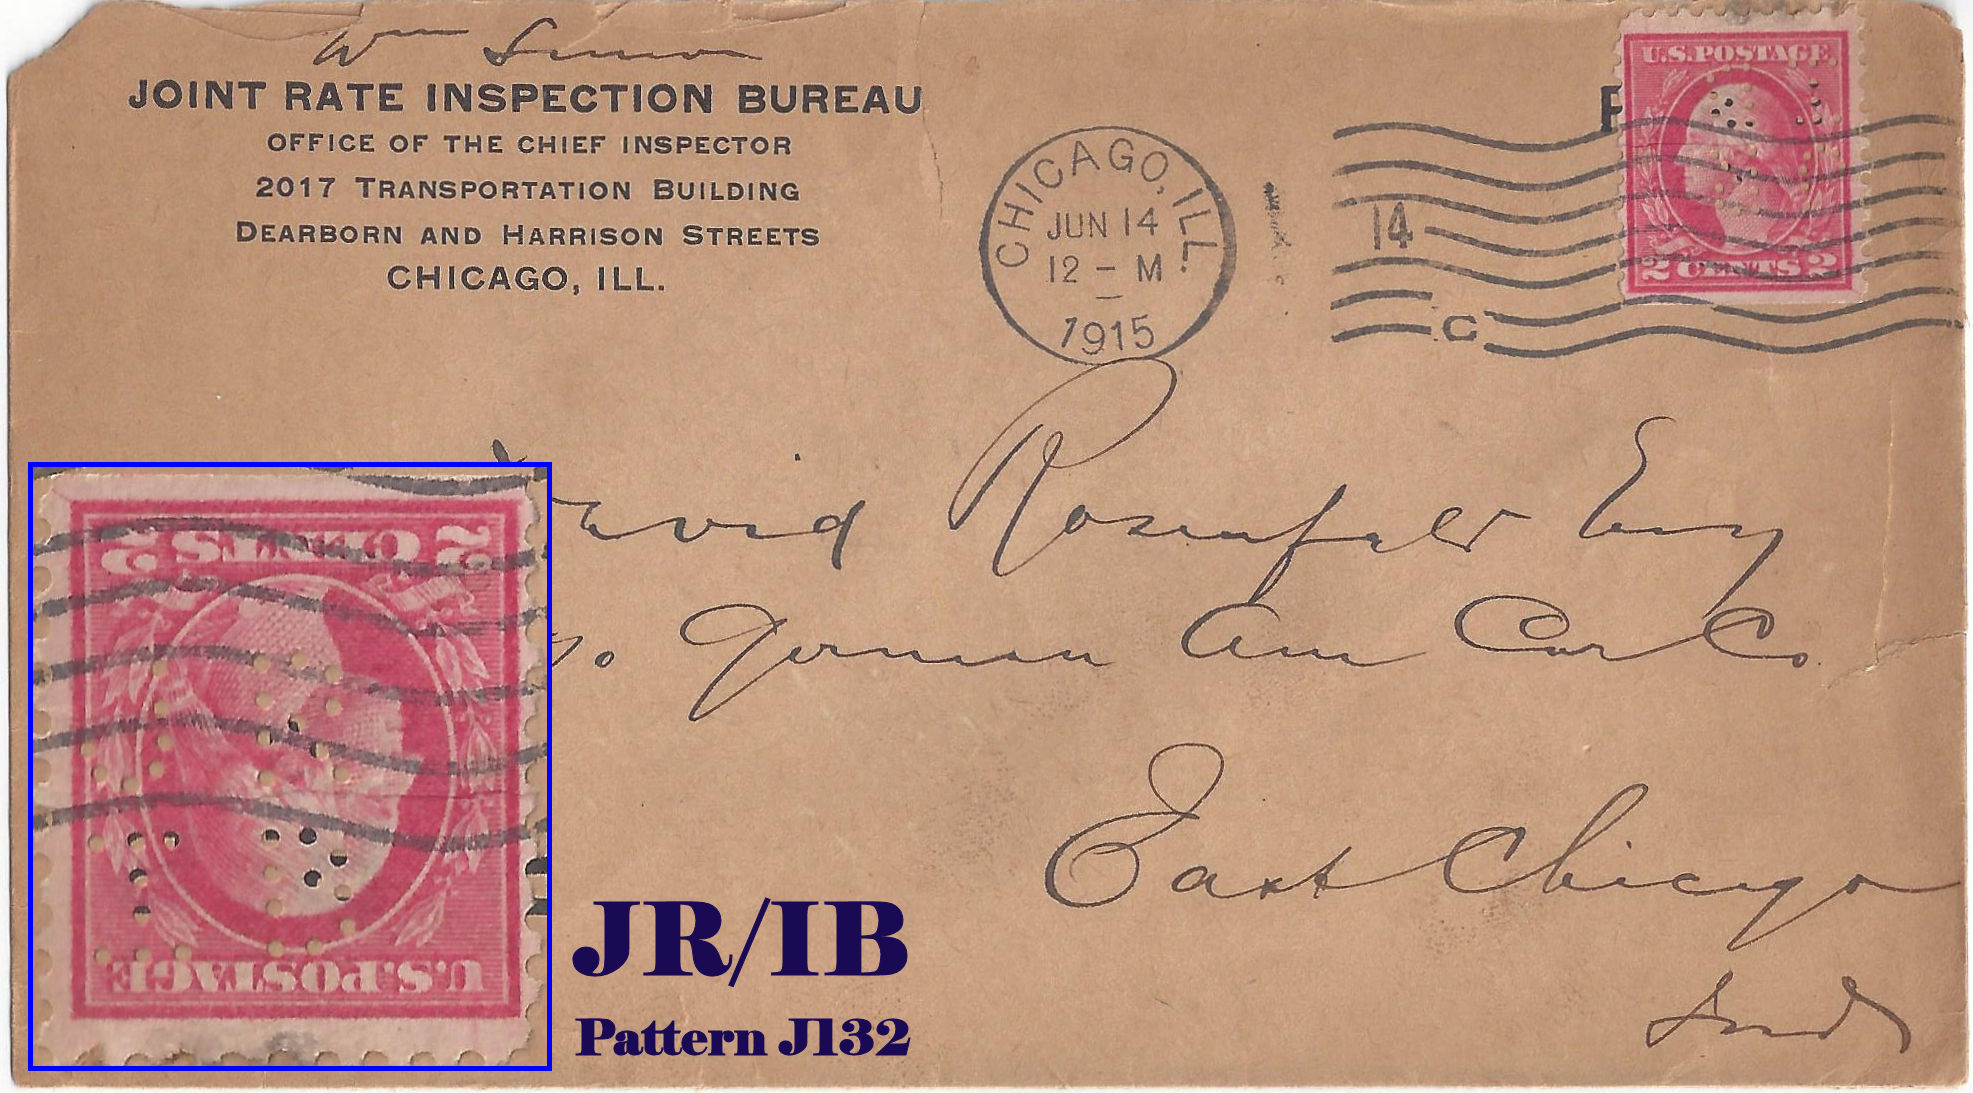 Wm Simon
JOINT RATE INSPECTION BUREAU
OFFICE OF THE CHIEF INSPECTOR
2017 TRANSPORTATION BUILDING
DEARBORN AND HARRISON STREETS
CHICAGO, ILL.
CHICAGO, ILL.
JUN 14
12 - M
1915
14
C
U.S. POSTAGE
2 CENTS 2
David Rosenfeld Esq
German Am Car Co
East Chicago
Ind
2 CENTS 2
U.S. POSTAGE
JR/IB
Pattern J132